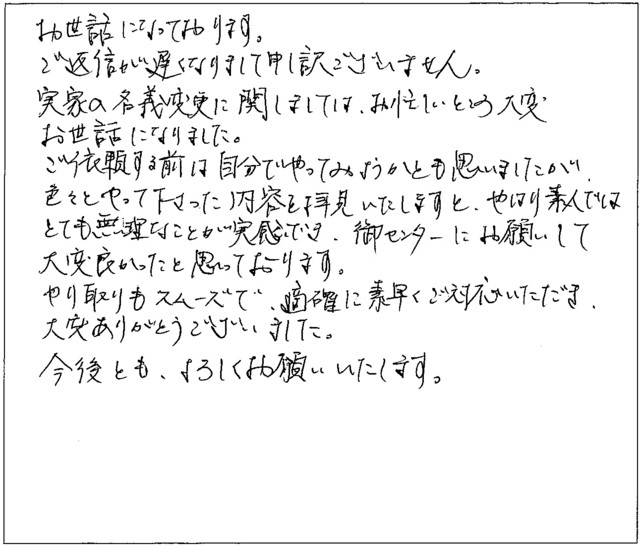 お世話になっております。
ご返信が遅くなりまして申し訳ございません。
実家の名義変更に関しましては、お忙しいところ大変
お世話になりました。
ご依頼する前は自分でやってみようかとも思いましたが、
色々とやって下さった内容を拝見いたしますと、やはり素人では
とても無理なことが実感でき、御センターにお願いして
大変良かったと思っております。
やり取りもスムーズで、適確に素早くご対応いただき、
大変ありがとうございました。
今後とも、よろしくお願いいたします。